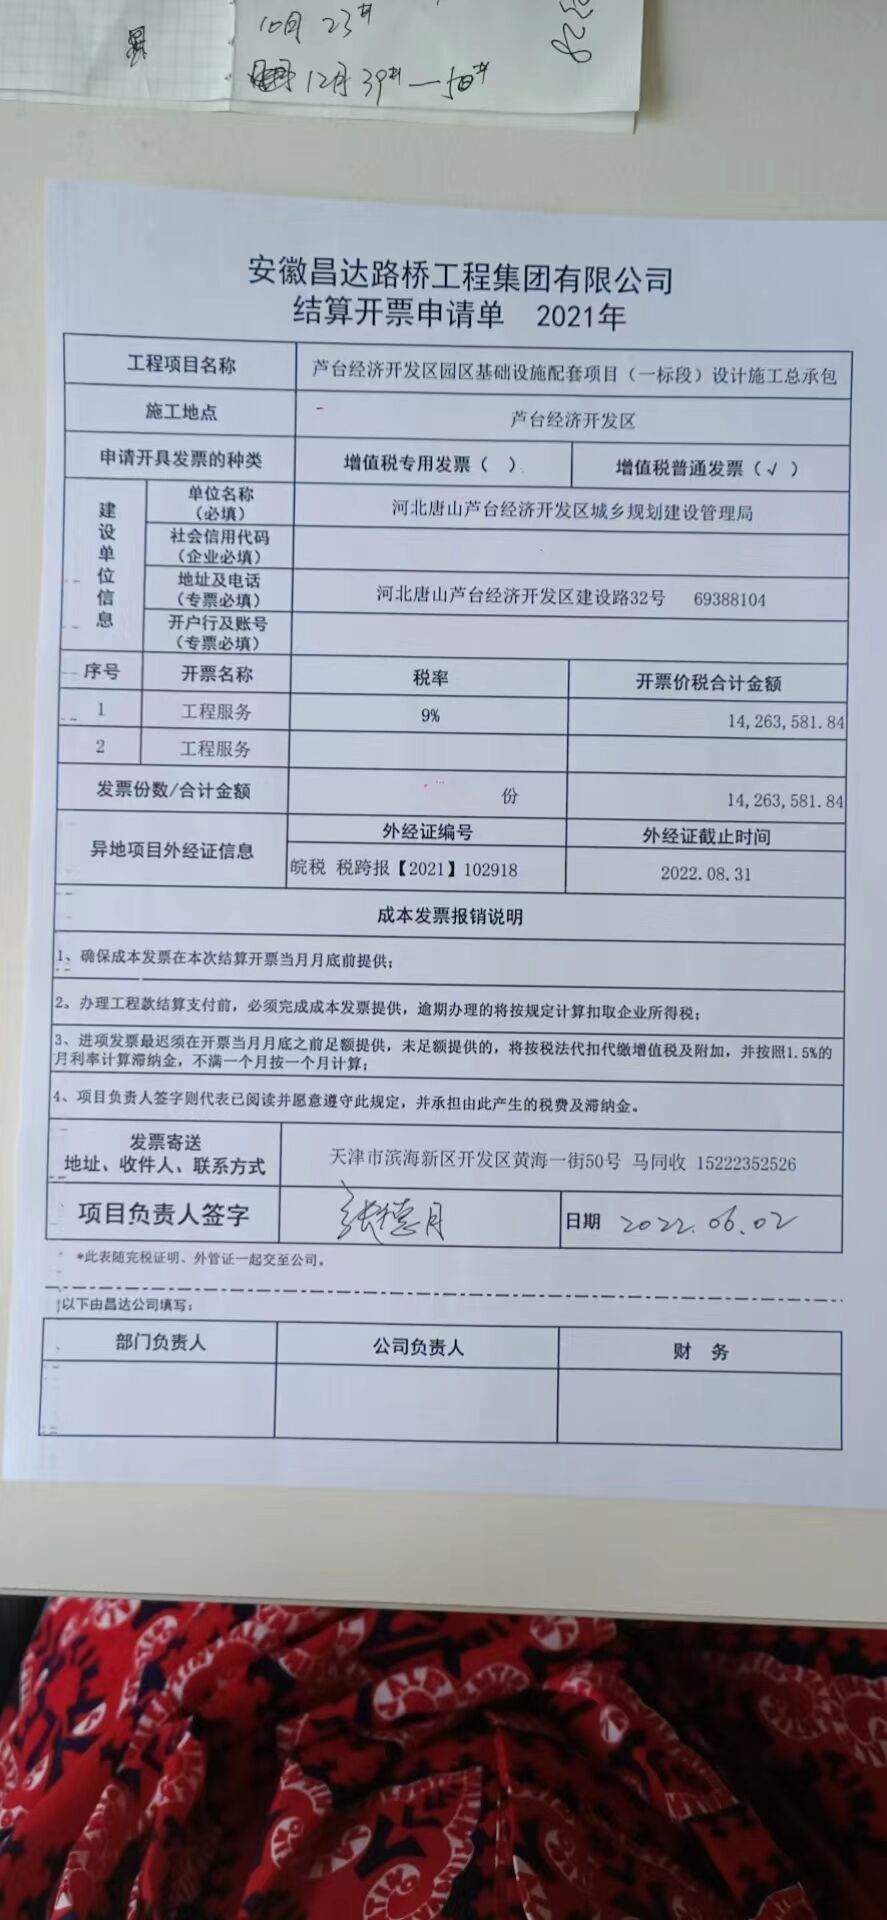 10月 23#
12月 39#一
安徽昌达路桥工程集团有限公司
结算开票申请单 2021年
工程项目名称 芦台经济开发区园区基础设施配套项目（一标段）设计施工总承包
施工地点 芦台经济开发区
申请开具发票的种类 增值税专用发票（ ） 增值税普通发票（√ ）
建设单位信息
单位名称
（必填）
河北唐山芦台经济开发区城乡规划建设管理局
社会信用代码
（企业必填）
地址及电话
（专票必填）
河北唐山芦台经济开发区建设路32号 69388104
开户行及账号
（专票必填）
序号 开票名称 税率 开票价税合计金额
1 工程服务 9% 14,263,581.84
2 工程服务
发票份数/合计金额 份 14,263,581.84
异地项目外经证信息
外经证编号 外经证截止时间
皖税 税跨报【2021】102918 2022.08.31
成本发票报销说明
1、确保成本发票在本次结算开票当月月底前提供；
2。办理工程款结算支付前，必须完成成本发票提供，逾期办理的将按规定计算扣取企业所得税；
3、进项发票最迟须在开票当月月底之前足额提供，未足额提供的，将按税法代扣代缴增值税及附加，并按照1.5%的
月利率计算滞纳金，不满一个月按一个月计算；
4、项目负责人签字则代表已阅读并愿意遵守此规定，并承担由此产生的税费及滞纳金。
发票寄送
地址、收件人、联系方式
天津市滨海新区开发区黄海一街50号 马同收 15222352526
项目负责人签字 张德月 日期 2022.06.02
*此表随完税证明、外管证一起交至公司。
以下由昌达公司填写：
部门负责人 公司负责人 财 务